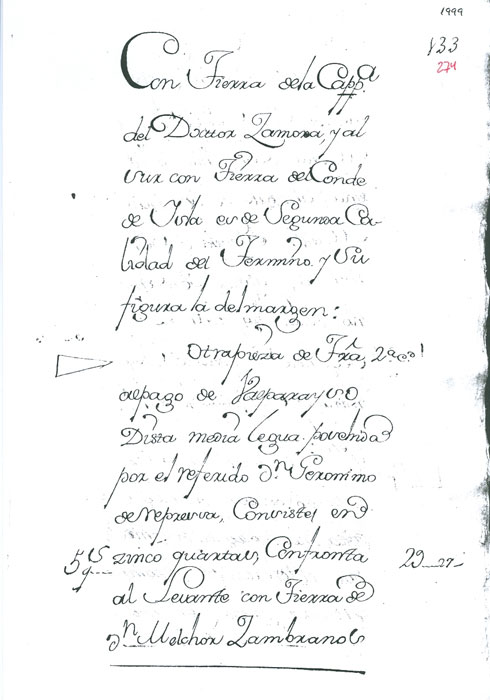 1999
133
274
Con Tierra de la Capp.a
del Doctor Zamora, y al
sur con Tierra del Conde
de Isla es de Segunda Ca-
lidad del Termino y su
figura la del margen:
Otra pieza de Trâ,
al pago de
Dista media legua posehida
por el referido Dn Geronimo
de represa, Consiste en
5 qs zinco quartas, Confronta 29 27
al Levante con Tierra de
Dn Melchor Zambrano